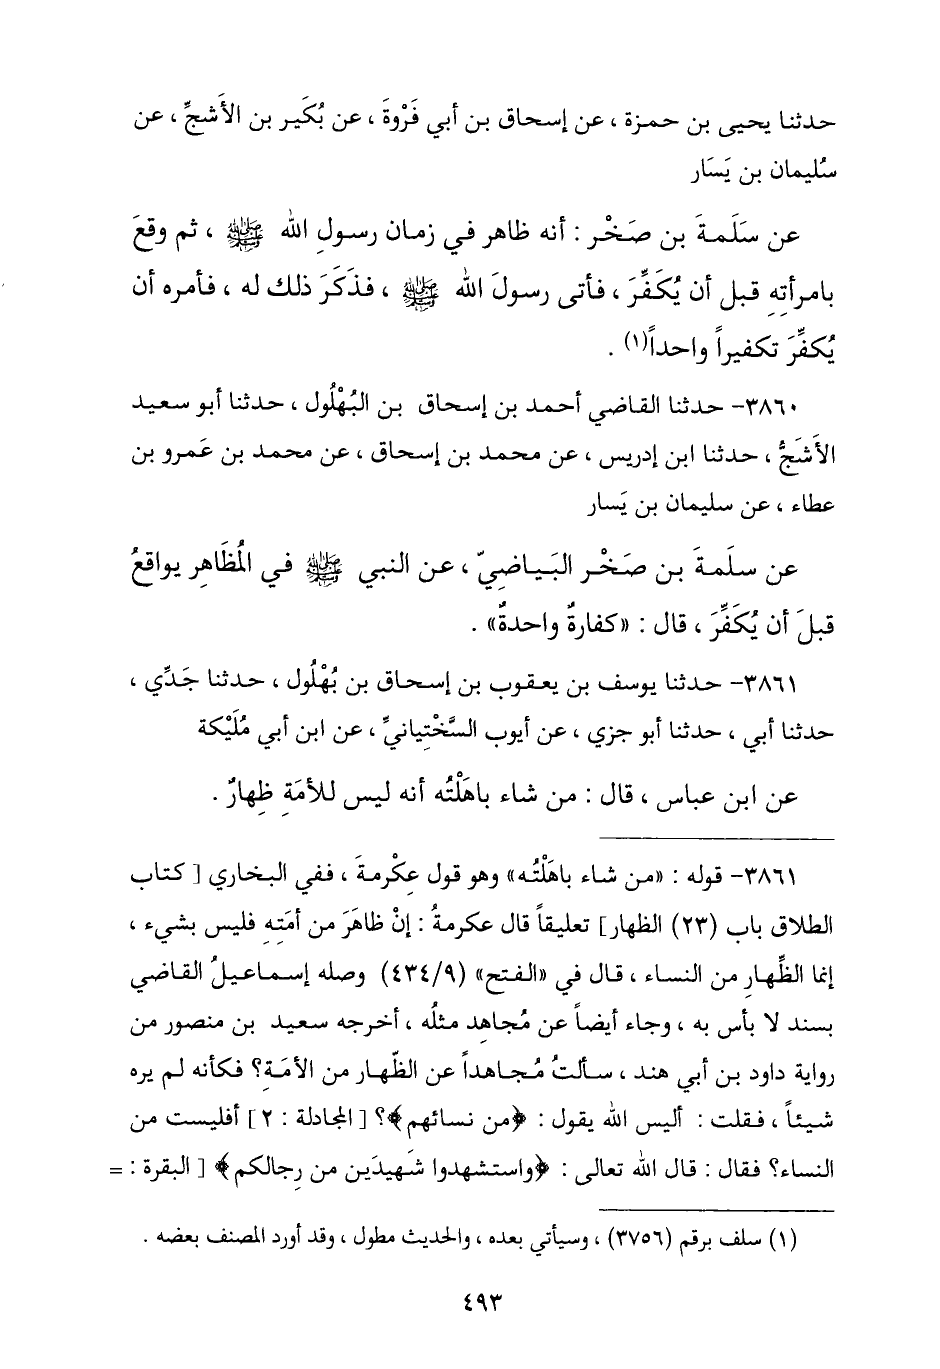 حدثنا يحيى بن حمزة ، عن إسحاق بن أبي فَرْوةَ ، عن بُكَير بن الأَشجِّ ، عن
سُليمان بن يَسَار
عن سَلَمةَ بن صَخْر : أنه ظاهر في زمان رسولِ الله ﷺ ، ثم وقعَ
بامرأتِهِ قبل أن يُكَفِّرَ ، فأتى رسولَ الله ﷺ ، فذَكَرَ ذلك له ، فأمره أن
يُكفِّرَ تكفيراً واحداً(١) .
٣٨٦٠- حدثنا القاضي أحمد بن إسحاق بن البُهْلُول ، حدثنا أبو سعيد
الأَشَجُّ ، حدثنا ابن إدريس ، عن محمد بن إسحاق ، عن محمد بن عَمرو بن
عطاء ، عن سليمان بن يَسار
عن سلَمةَ بن صَخْر البَياضِيّ ، عن النبي ﷺ في المُظَاهِر يواقعُ
قبلَ أن يُكَفِّرَ ، قال : «كفارةٌ واحدةٌ» .
٣٨٦١- حدثنا يوسف بن يعقوب بن إسحاق بن بُهْلُول ، حدثنا جَدِّي ،
حدثنا أبي ، حدثنا أبو جزي ، عن أيوب السَّخْتِيانيِّ ، عن ابن أبي مُلَيْكة
عن ابن عباس ، قال : من شاء باهَلْتُه أنه ليس للأمَةِ ظِهارٌ .
٣٨٦١- قوله : «من شاء باهَلْتُه» وهو قول عِكْرمةَ ، ففي البخاري [ كتاب
الطلاق باب (٢٣) الظهار] تعليقاً قال عكرمةُ : إنْ ظاهَرَ من أمَتِهِ فليس بشيء ،
إنما الظِّهارِ من النساء ، قال في «الفتح» (٤٣٤/٩) وصله إسماعيلُ القاضي
بسند لا بأس به ، وجاء أيضاً عن مُجاهدٍ مثلُه ، أخرجه سعيد بن منصور من
رواية داود بن أبي هند ، سألتُ مُجاهداً عن الظّهار من الأمَة؟ فكأنه لم يره
شيئاً ، فقلت : أليس الله يقول : ﴿من نسائهم﴾؟ [ المجادلة : ٢ ] أفليست من
النساء؟ فقال : قال الله تعالى : ﴿واستشهدوا شَهيدَين من رِجالكم﴾ [ البقرة : =
(١) سلف برقم (٣٧٥٦) ، وسيأتي بعده ، والحديث مطول ، وقد أورد المصنف بعضه .
٤٩٣